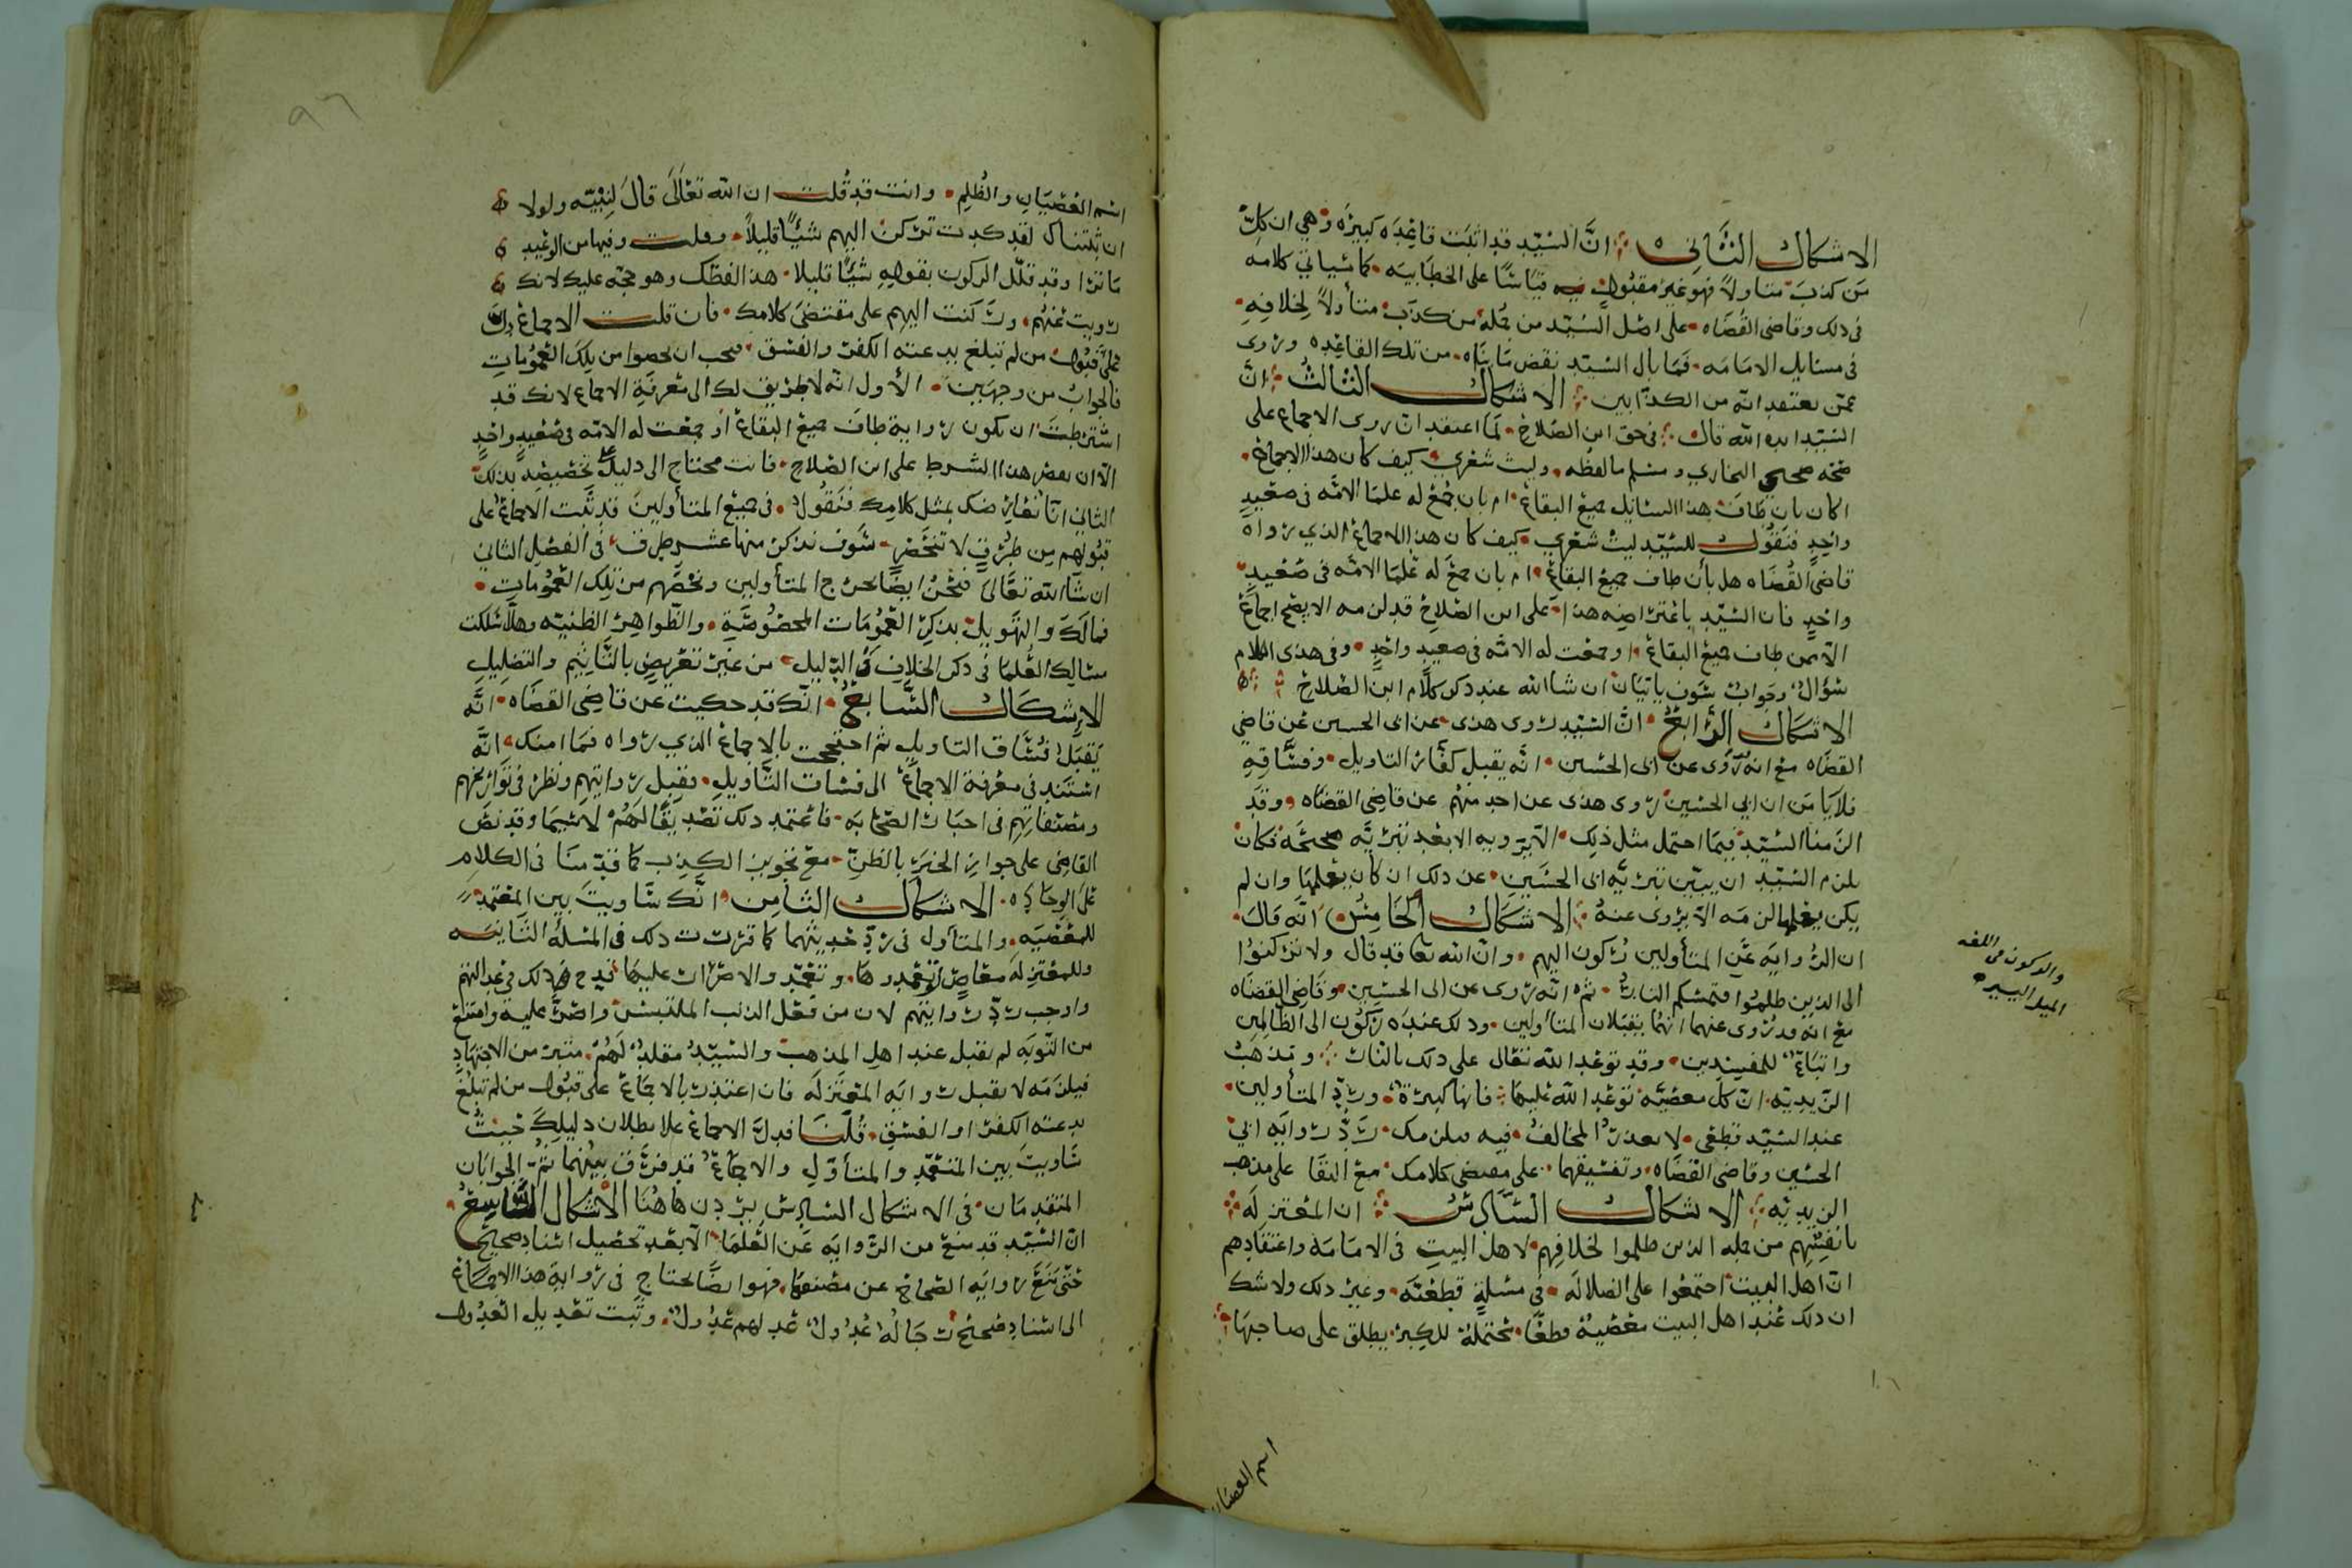 الاشكال الثاني ان السيد قد اثبت قاعده كبيره وهي ان كل
من كذب متاولا فهو غير مقبول قياسا على الخطابيه كما سياتي كلامه
في ذلك وقاضي القضاه على اصل السيد من جمله من كذب متأولا لخلافه
في مسايل الامامه فما بال السيد نقض ما بناه من تلك القاعده وروى
عمن يعتقد انه من الكذابين الاشكال الثالث ان
السيد ايده الله قال في حق ابن الصلاح لما اعتقد ان روى الاجماع على
صحه صحيح البخاري ومسلم ما لفظه وليت شعري كيف كان هذا الاجماع
اكان بان طاف هذا السايل جميع البقاع ام بان جمع له علما الامه في صعيد
واحد فنقول للسيد ليت شعري كيف كان هذا الاجماع الذي رواه
قاضي القضاه هل بأن طاف جميع البقاع ام بان جمع له علما الامه في صعيد
واحد فان السيد باعتراضه هذا على ابن الصلاح قد لزمه الا يصح اجماع
الا ممن طاف جميع البقاع او جمعت له الامه في صعيد واحد وفي هذى الكلام
سؤال وجواب سوف ياتيان ان شا الله عند ذكر كلام ابن الصلاح
الاشكال الرابع ان السيد روى هذى عن ابى الحسين عن قاضي
القضاه مع انه روى عن ابى الحسين انه يقبل كفار التاويل وفساقه
فلا يامن ان ابي الحسين روى هذى عن احد منهم عن قاضي القضاه وقد
الزمنا السيد فيما احتمل مثل ذلك الا يرويه الا بعد تبرئه صحيحه فكان
يلزم السيد ان يبين تبريه ابى الحسين عن ذلك ان كان يعلمها وان لم
يكن يعلمها لزمه الا يروى عنه الاشكال الخامس انه قال
ان الروايه عن المتأولين ركون اليهم وان الله تعا قد قال ولا تركنوا
الى الذين ظلموا فتمسكم النار ثم انه روى عن ابى الحسين وقاضي القضاه
مع انه قد روى عنهما انهما يقبلان المتأولين وذلك عنده ركون الى الظالمين
واتباع للمفسدين وقد توعد الله تعالى على ذلك بالنار ومذهب
الزيديه ان كل معصيه توعد الله عليها فانها كبيرة ورد المتأولين
عند السيد قطعي لا يعذر المخالف فيه فيلزمك رد روايه ابي
الحسين وقاضي القضاه وتفسيقهما على مقتضى كلامك مع البقا على مذهب
الزيديه الاشكال السادس ان المعتزله
بانفسهم من جمله الذين ظلموا لخلافهم لاهل البيت في الامامه واعتقادهم
ان اهل البيت اجتمعوا على الضلاله في مسئلة قطعيه وغير ذلك ولا شك
ان ذلك عند اهل البيت معصية قطعا محتملة للكبر يطلق على صاحبها
والركون في اللغه
الميل اليسير
اسم العصيان
اسم العصيان والظلم وانت قد قلت ان الله تعالى قال لنبيه ولولا
ان ثبتناك لقد كدت تركن اليهم شيئا قليلا وقلت وفيها من الوعيد
ما ترا وقد قلل الركون بقوله شيئا قليلا هذا لفظك وهو حجه عليك لانك
رويت عنهم وركنت اليهم على مقتضى كلامك فان قلت الاجماع دل
على قبول من لم تبلغ بدعته الكفر والفسق فيجب ان يخصوا من تلك العمومات
فالجواب من وجهين الأول انه لا طريق لك الى معرفة الاجماع لانك قد
اشترطت ان يكون راويه طاف جميع البقاع او جمعت له الامه في صعيد واحد
الا ان يقصر هذا الشرط على ابن الصلاح فانت محتاج الى دليل على تخصيصه بذلك
الثاني انا نعارضك بمثل كلامك فنقول في جميع المتأولين قد ثبت الاجماع على
قبولهم من طرق لا تنحصر سوف نذكر منها عشر طرق في الفصل الثاني
ان شا الله تعالى فنحن ايضا نخرج المتأولين ونخصهم من تلك العمومات
فمالك والتهويل بذكر العمومات المخصوصة والظواهر الظنيه وهلا سلكت
مسالك العلما في ذكر الخلاف والدليل من غير تعريض بالتاثيم والتضليل
الاشكال السابع انك قد حكيت عن قاضي القضاه انه
يقبل فساق التاويل ثم احتججت بالاجماع الذي رواه فما امنك انه
استند في معرفة الاجماع الى فساق التاويل فقبل روايتهم ونظر في تواريخهم
ومصنفاتهم في اخبار الصحابه فاعتمد ذلك تصديقا لهم لا سيما وقد نص
القاضي على جواز الخبر بالظن مع تجويز الكذب كما قدمنا في الكلام
على الوجاده الاشكال الثامن انك ساويت بين المعتمد
للمعصيه والمتأول في رد حديثهما كما قررت ذلك في المسئلة الثانيه
وللمعتزله معاص تعمدوها وتعمد والاصرار عليها قدح ذلك في عدالتهم
واوجب رد روايتهم لان من فعل الذنب الملتبس واصر عليه وامتنع
من التوبه لم يقبل عند اهل المذهب والسيد مقلد لهم متبر من الاجتهاد
فيلزمه لا يقبل روايه المعتزله فان اعتذرت بالاجماع على قبول من لم تبلغ
بدعته الكفر او الفسق قلنا فدل الاجماع على بطلان دليلك حيث
ساويت بين المتعمد والمتأول والاجماع قد فرق بينهما ثم الجوابان
المتقدمان في الاشكال السادس يردان هاهنا الاشكال التاسع
ان السيد قد منع من الروايه عن العلما الا بعد تحصيل اسناد صحيح
حتى منع روايه الصحاح عن مصنفها فهو ايضا يحتاج في رواية هذا الاجماع
الى اسناد صحيح رجاله عدول عدلهم عدول وثبت تعديل العدول